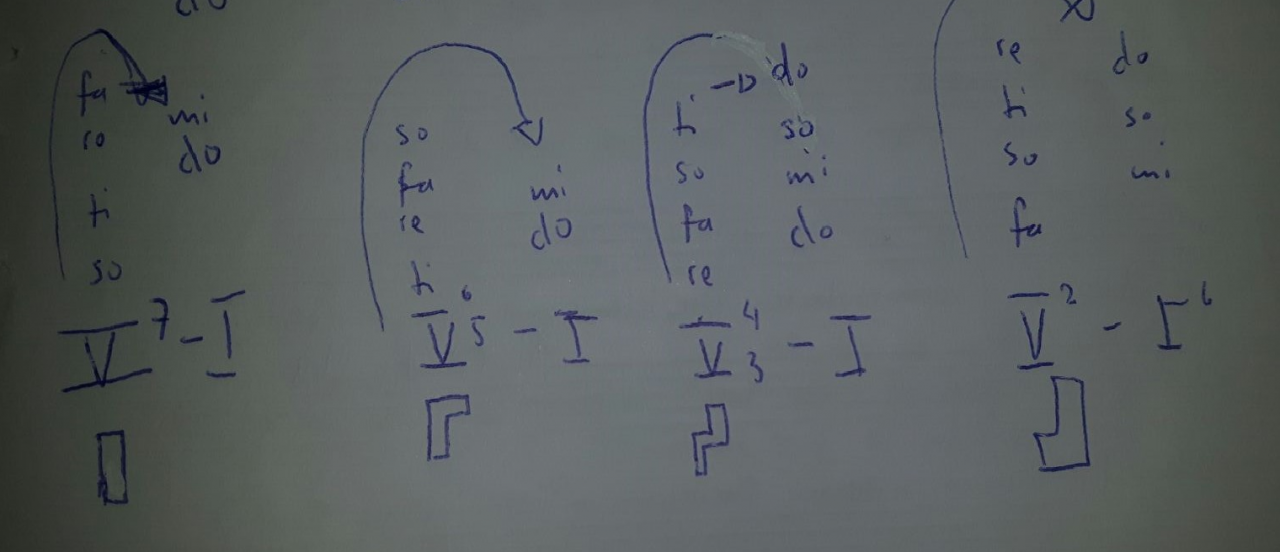 do
fa
mi
ro
do
ti
so
V7 - I
so
fa
mi
re
do
ti
V6 5 - I
ti
do
so
so
mi
fa
do
re
V4 3 - I
re
do
ti
so
so
mi
fa
V2 - I6